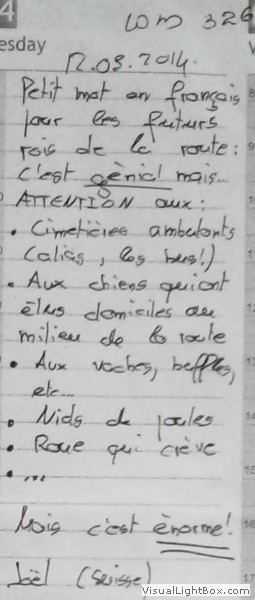 4
esday
WM 326
12.03.2014.
Petit mot en français
pour les futurs
rois de la route:
c'est génial mais...
ATTENTION aux:
• Cimetières ambulants
(alias, les bus!)
• Aux chiens qui ont
élus domiciles au
milieu de la route
• Aux vaches, buffles,
etc...
• Nids de poules
• Roue qui crève
• ...
Mais c'est énorme!
Joël (Suisse)
VisualLightBox.com